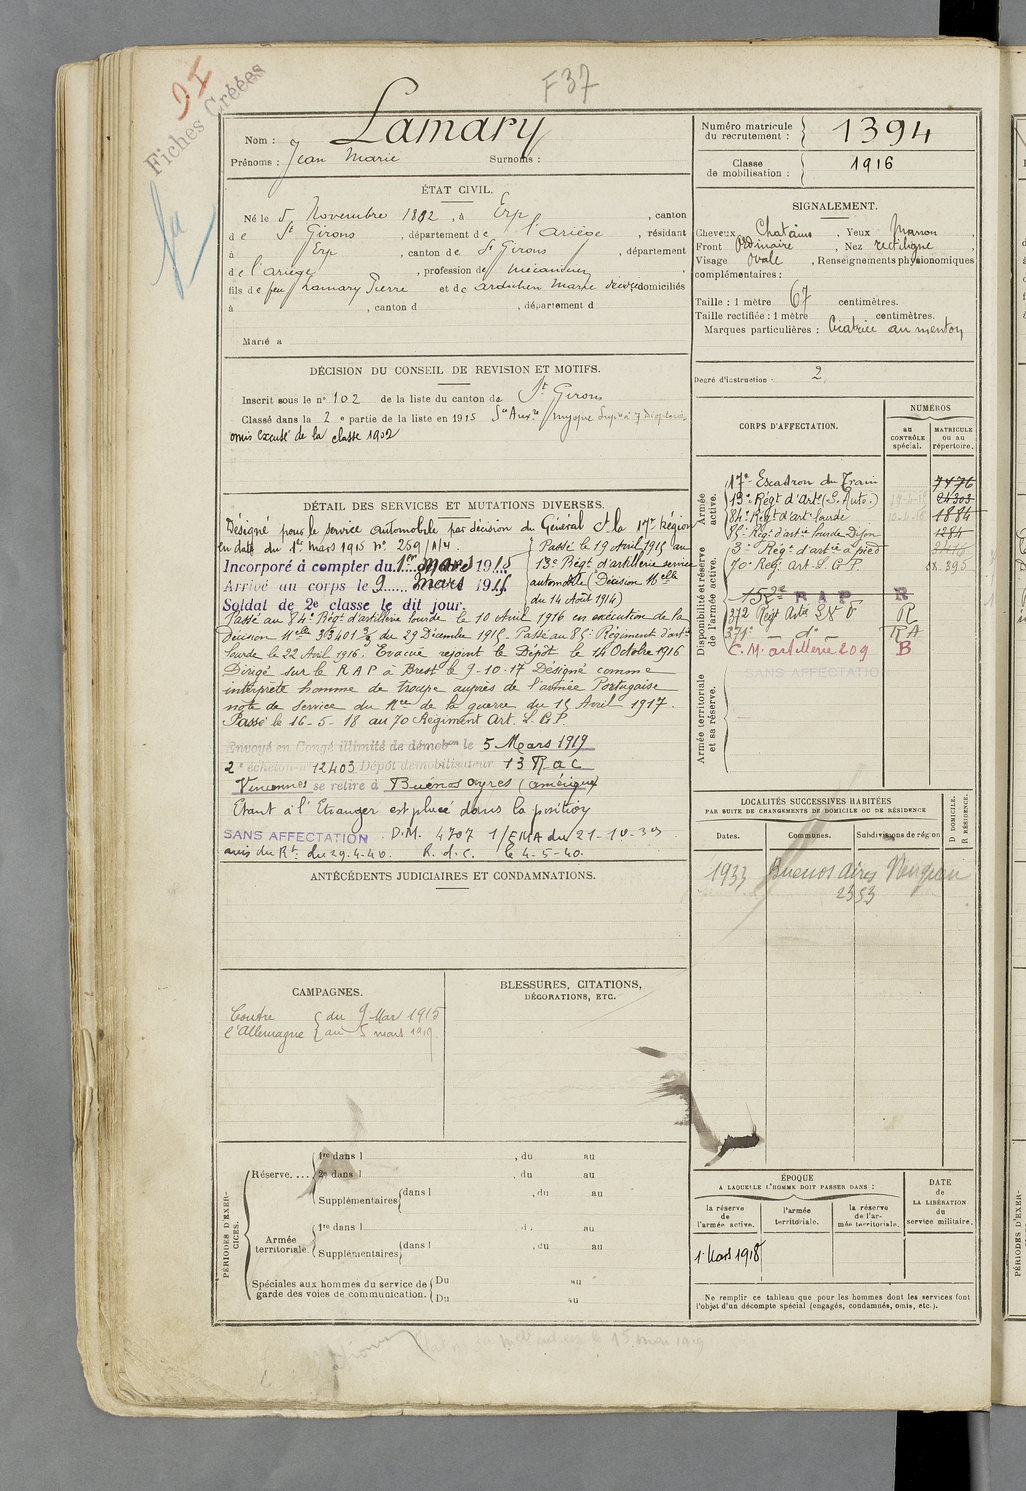 F37
Fiches Créées
Nom : Lamary
Prénoms : Jean Marie Surnoms :
ÉTAT CIVIL.
Né le 5 Novembre 1882, à Erp, canton
de St Girons, département de l'Ariège, résidant
à Erp, canton de St Girons, département
de l'Ariège, profession de mécanicien,
fils de feu Lamary Pierre et de Marie domiciliés
à , canton d , département d
Marié à
DÉCISION DU CONSEIL DE REVISION ET MOTIFS.
Inscrit sous le n° 102 de la liste du canton de St Girons
Classé dans la 2e partie de la liste en 1915 Sce Auxre myopie Supre à 7 dioptries
omis excusé de la classe 1902
DÉTAIL DES SERVICES ET MUTATIONS DIVERSES.
Désigné pour le service automobile par décision du Général Ct la 17e Région
en date du 1er mars 1915 n° 259/1/4.
Incorporé à compter du 1er mars 1915
Arrivé au corps le 9 mars 1915
Soldat de 2e classe le dit jour.
Passé le 19 Avril 1915 au
13e Régt d'artillerie service
automobile (Décision Mlle
du 14 Août 1914)
Passé au 84e Régt d'artillerie lourde le 10 Avril 1916 en exécution de la
décision Mlle 33401 3/3 du 29 Décembre 1915. Passé au 85e Régiment d'artie
lourde le 22 Avril 1916. Evacué rejoint le Dépôt le 14 Octobre 1916
Dirigé sur le R A P à Brest le 9-10-17 Désigné comme
interprète homme de troupe auprès de l'armée Portugaise
note de service du Mtre de la guerre du 15 Avril 1917.
Passé le 16-5-18 au 70 Régiment Art. L G P.
Envoyé en Congé illimité de démobon le 5 Mars 1919
2e échelon n° 12403 Dépôt démobilisateur 13 R a c
Vincennes se retire à Buénos Ayres (amérique)
Etant à l'Etranger est placé dans la position
SANS AFFECTATION D.M. 4707 1/EMA du 21-10-30
avis du Rt du 29-4-40. R. d. c. le 4-5-40.
ANTÉCÉDENTS JUDICIAIRES ET CONDAMNATIONS.
CAMPAGNES.
Contre l'Allemagne du 9 Mar 1915
au 5 mars 1919
BLESSURES, CITATIONS,
DÉCORATIONS, ETC.
PÉRIODES D'EXERCICES.
Réserve....
1re dans l , du au
2e dans l , du au
Supplémentaires dans l , du au
Armée territoriale.
1re dans l , du au
Supplémentaires dans l , du au
Spéciales aux hommes du service de garde des voies de communication.
Du au
Du au
Numéro matricule du recrutement : 1394
Classe de mobilisation : 1916
SIGNALEMENT.
Cheveux Chatains, Yeux marron,
Front Ordinaire, Nez rectiligne,
Visage Ovale, Renseignements physionomiques
complémentaires :
Taille : 1 mètre 67 centimètres.
Taille rectifiée : 1 mètre centimètres.
Marques particulières : Cicatrice au menton
Degré d'instruction : 2
CORPS D'AFFECTATION.
NUMÉROS
au CONTRÔLE spécial.
MATRICULE ou au répertoire.
Armée active.
17e Escadron du Train 7476
13e Régt d'art (S. Auto.) 24303
84e Régt d'art lourde 1884
85e Régt d'artie lourde Dijon 1284
3e Régt d'artie à pied
70e Rég. Art. L G P
Disponibilité et réserve de l'armée active.
152e R A P R
372 Régt Artie R
371e do R A
C. M. artillerie 209 B
SANS AFFECTATION
Armée territoriale et sa réserve.
LOCALITÉS SUCCESSIVES HABITÉES
PAR SUITE DE CHANGEMENTS DE DOMICILE OU DE RÉSIDENCE
Dates. Communes. Subdivisions de région
D DOMICILE.
R RÉSIDENCE.
1933 Buenos Aires
2353
ÉPOQUE
A LAQUELLE L'HOMME DOIT PASSER DANS :
la réserve de l'armée active.
l'armée territoriale.
la réserve de l'armée territoriale.
DATE de LA LIBÉRATION du service militaire.
1 Mars 1918
Ne remplir ce tableau que pour les hommes dont les services font
l'objet d'un décompte spécial (engagés, condamnés, omis, etc.).